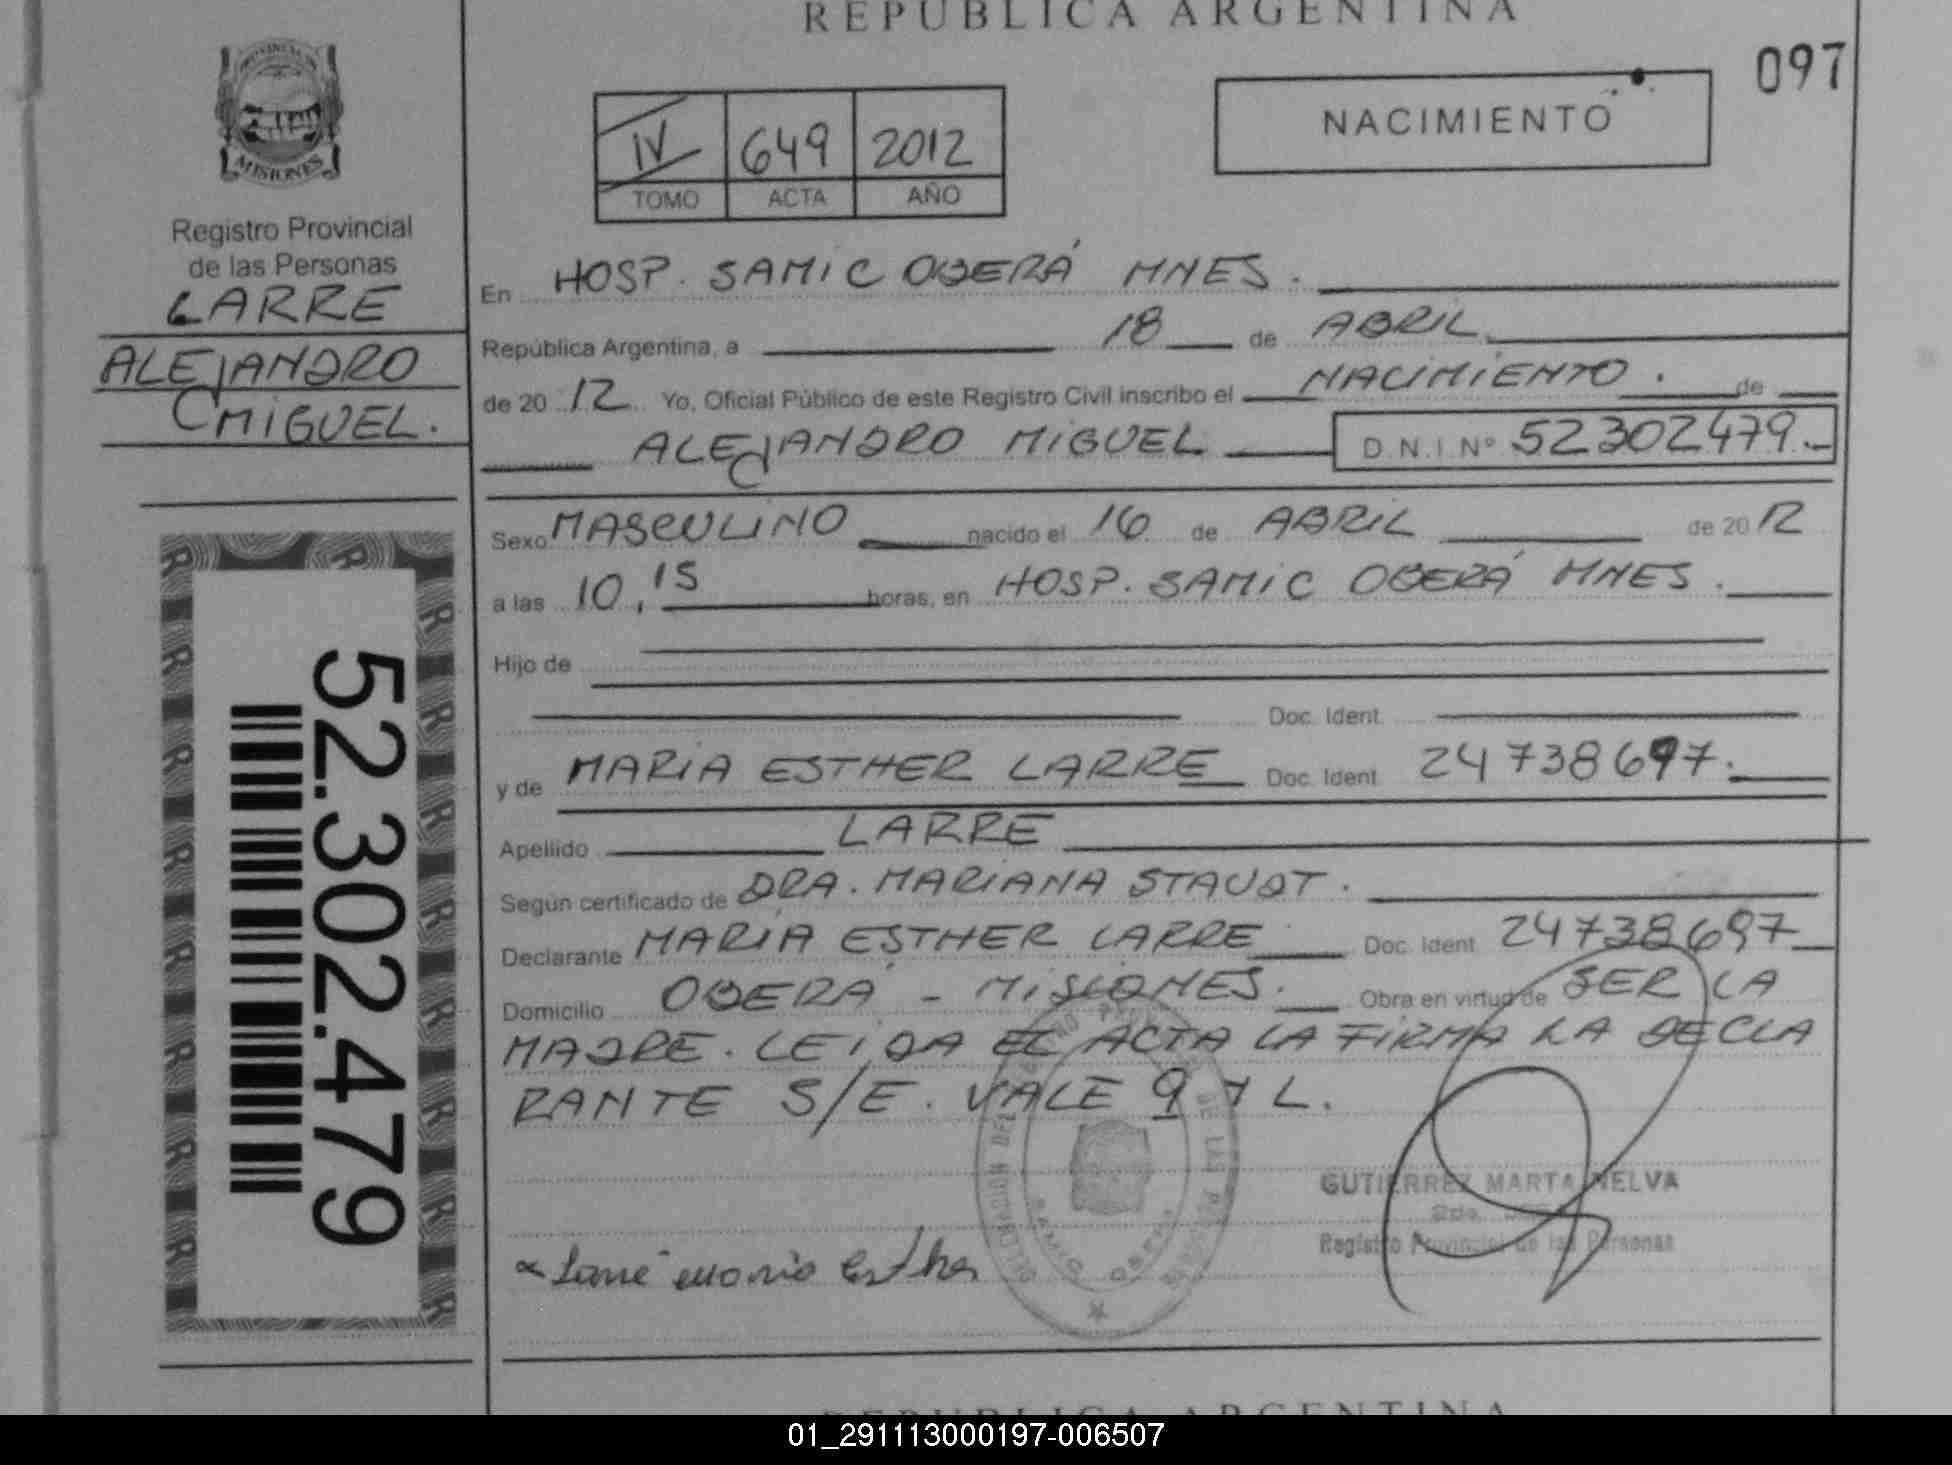 REPUBLICA ARGENTINA
097
PROVINCIA DE
MISIONES
Registro Provincial
de las Personas
LARRE
ALEJANDRO
MIGUEL.
52.302.479
IV 649 2012
TOMO ACTA AÑO
NACIMIENTO
En HOSP. SAMIC OBERÁ MNES.
República Argentina, a 18 de ABRIL
de 20 12 Yo, Oficial Público de este Registro Civil inscribo el NACIMIENTO. de
ALEJANDRO MIGUEL D.N.I. Nº 52302479.
Sexo MASCULINO nacido el 16 de ABRIL de 20 12
a las 10,15 horas, en HOSP. SAMIC OBERÁ MNES.
Hijo de
Doc. Ident.
y de MARIA ESTHER LARRE Doc. Ident. 24738697.
Apellido LARRE
Según certificado de DRA. MARIANA STAUDT.
Declarante MARIA ESTHER LARRE Doc. Ident. 24738697
Domicilio OBERÁ - MISIONES. Obra en virtud de SER LA
MADRE. LEIDA EL ACTA LA FIRMA LA DECLA
RANTE S/E. VALE 9 Y L.
GUTIERREZ MARTA NELVA
Registro Provincial de las Personas
Larre Maria Esther
DELEGACION DEL DE LAS
SAMIC OBERA
REPUBLICA ARGENTINA
01_291113000197-006507